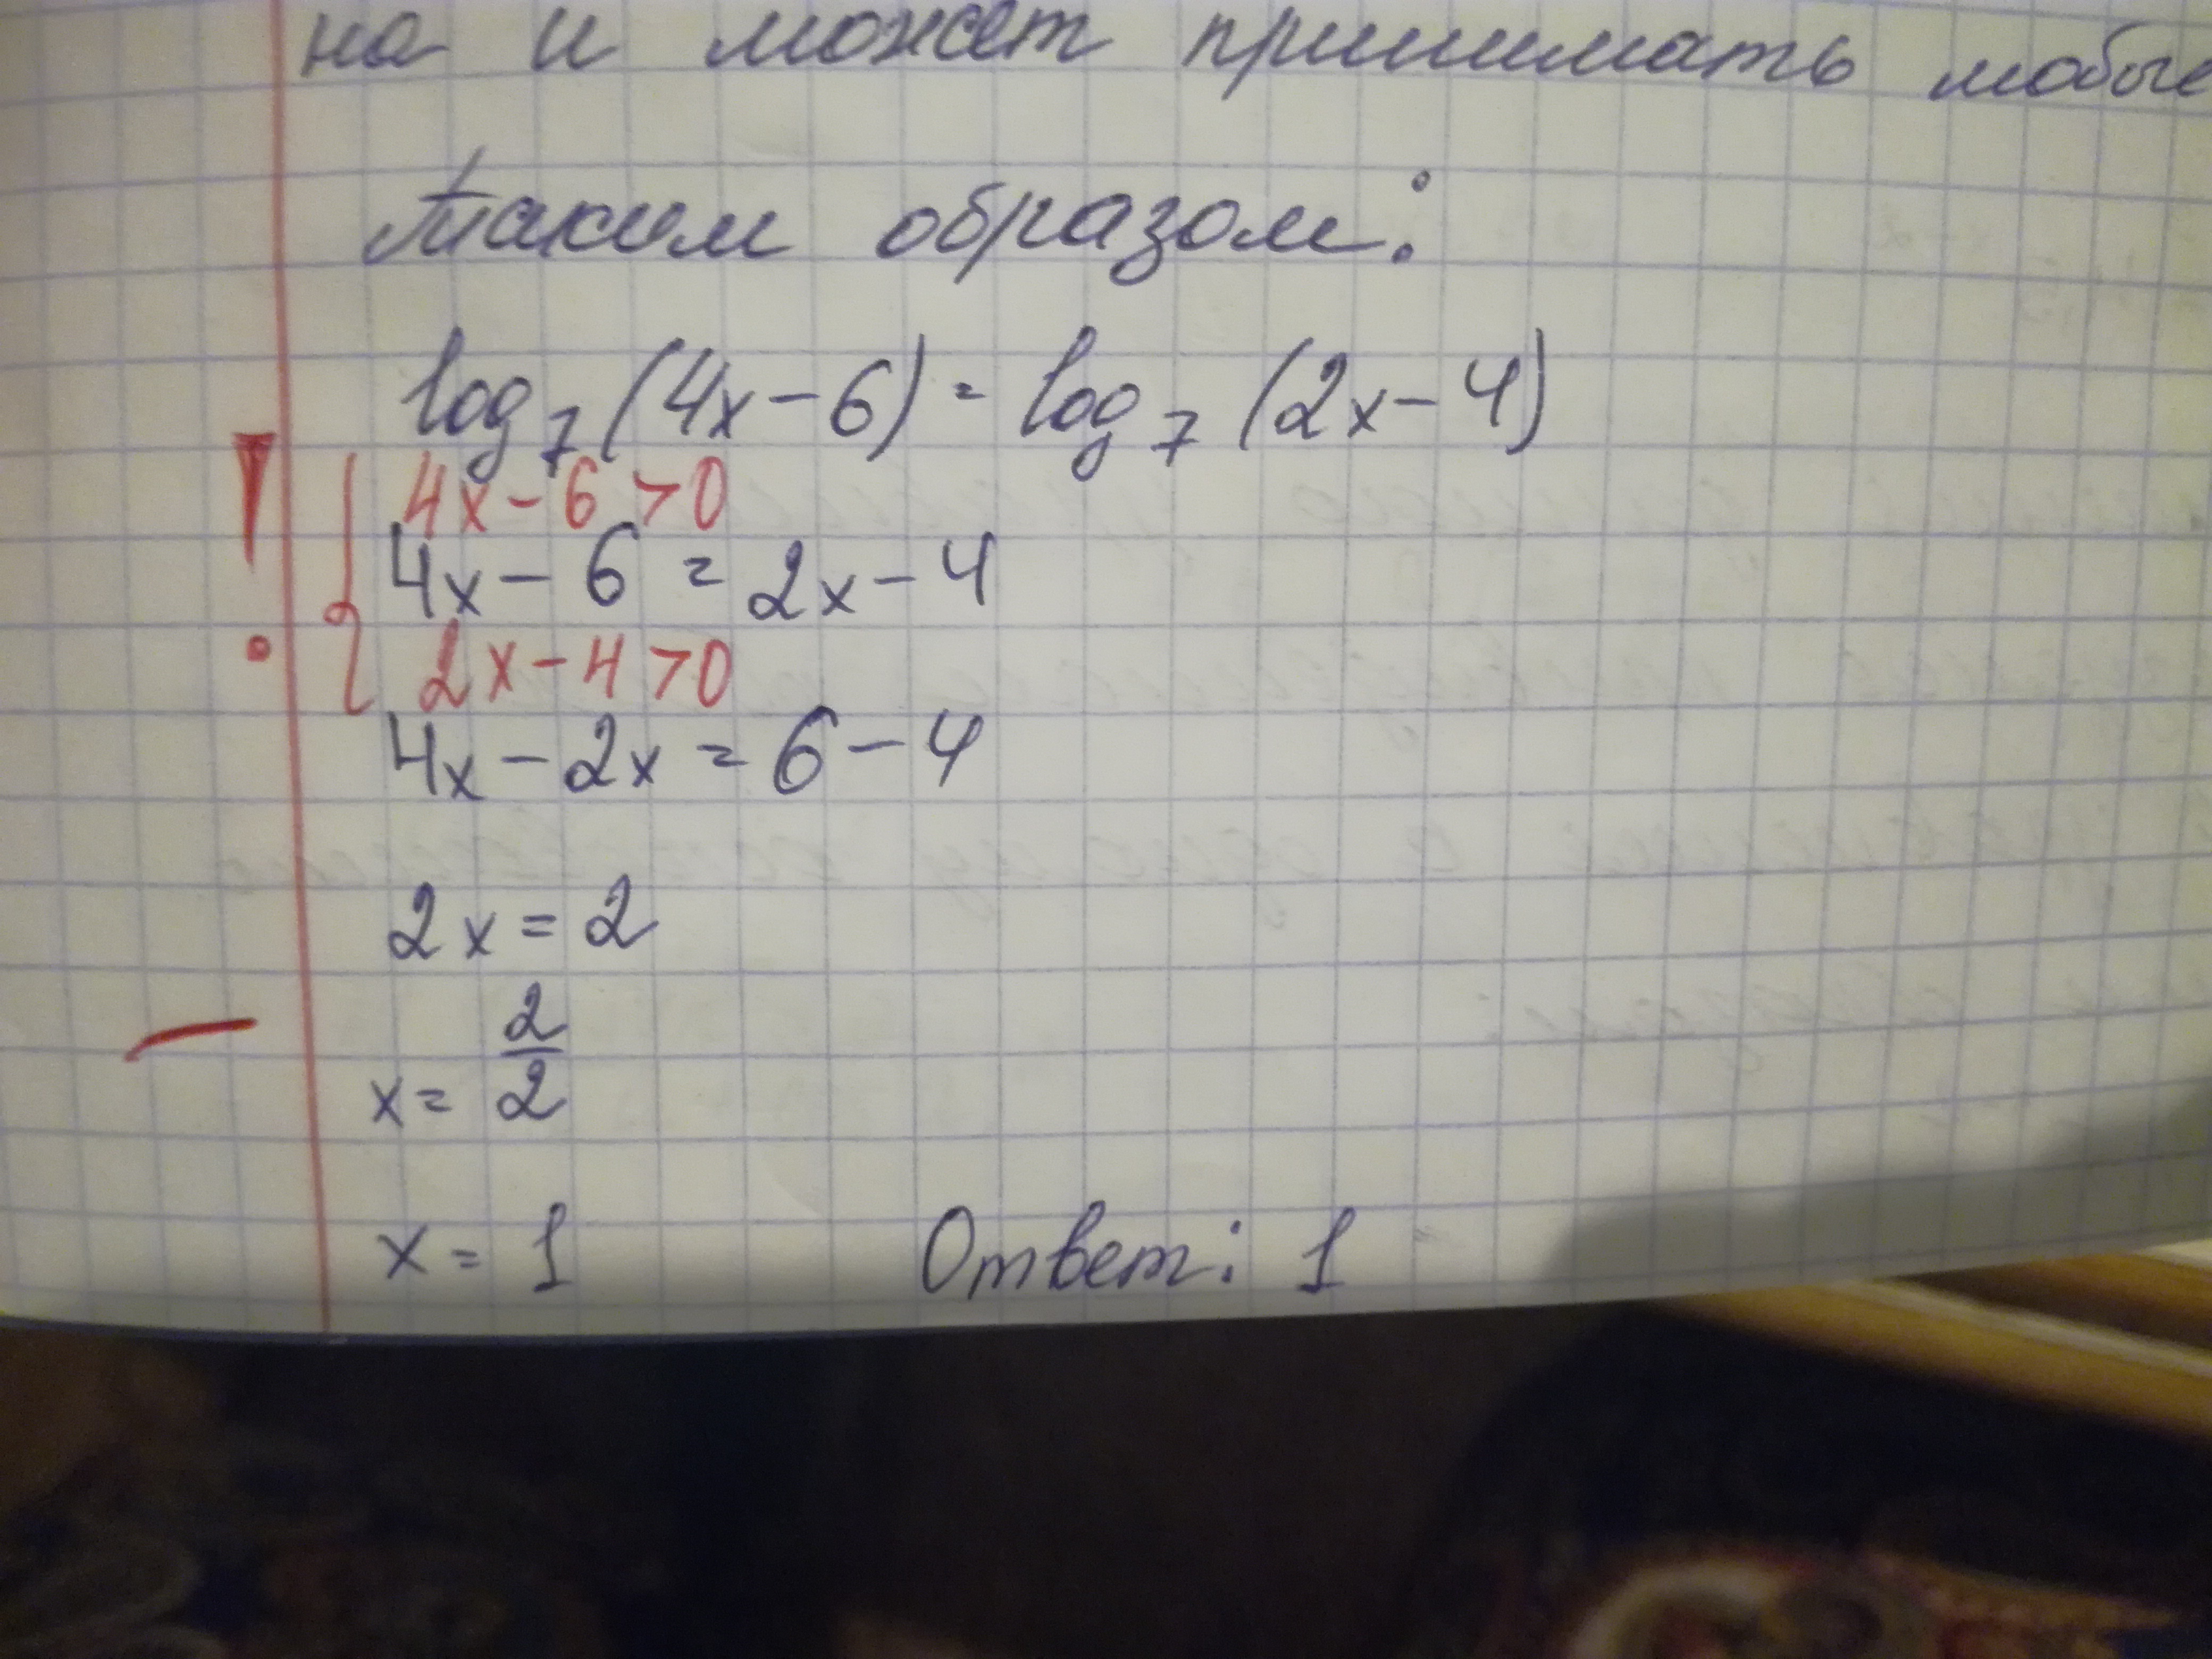 на и может принимать любые
Таким образом:
log₇(4x-6) = log₇(2x-4)
! { 4x-6>0
4x-6 = 2x-4
2x-4>0
4x-2x = 6-4
2x = 2
x = 2/2
x = 1 Ответ: 1